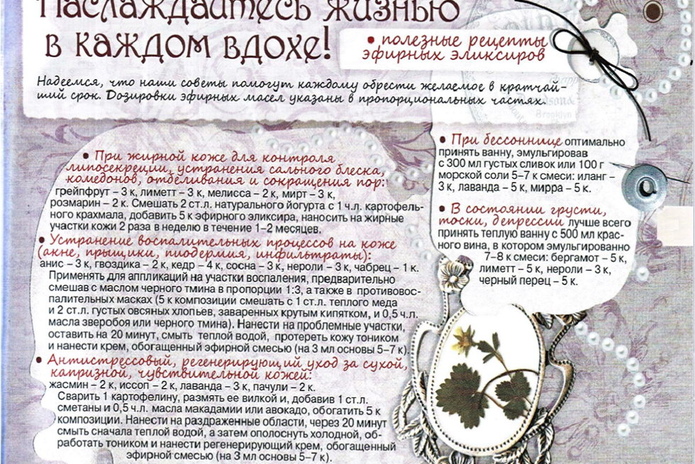 Наслаждайтесь жизнью
в каждом вдохе!
• полезные рецепты
эфирных эликсиров
Надеемся, что наши советы помогут каждому обрести желаемое в кратчай-
ший срок. Дозировки эфирных масел указаны в пропорциональных частях.
• При жирной коже для контроля
липосекреции, устранения сального блеска,
комедонов, отбеливания и сокращения пор:
грейпфрут – 3 к, лиметт – 3 к, мелисса – 2 к, мирт – 3 к,
розмарин – 2 к. Смешать 2 ст.л. натурального йогурта с 1 ч.л. картофель-
ного крахмала, добавить 5 к эфирного эликсира, наносить на жирные
участки кожи 2 раза в неделю в течение 1–2 месяцев.
• Устранение воспалительных процессов на коже
(акне, прыщики, пиодермия, инфильтраты):
анис – 3 к, гвоздика – 2 к, кедр – 4 к, сосна – 3 к, нероли – 3 к, чабрец – 1 к.
Применять для аппликаций на участки воспаления, предварительно
смешав с маслом черного тмина в пропорции 1:3, а также в противовос-
палительных масках (5 к композиции смешать с 1 ст.л. теплого меда
и 2 ст.л. густых овсяных хлопьев, заваренных крутым кипятком, и 0,5 ч.л.
масла зверобоя или черного тмина). Нанести на проблемные участки,
оставить на 20 минут, смыть теплой водой, протереть кожу тоником
и нанести крем, обогащенный эфирной смесью (на 3 мл основы 5–7 к).
• Антистрессовый, регенерирующий уход за сухой,
капризной, чувствительной кожей:
жасмин – 2 к, иссоп – 2 к, лаванда – 3 к, пачули – 2 к.
Сварить 1 картофелину, размять ее вилкой и, добавив 1 ст.л.
сметаны и 0,5 ч.л. масла макадамии или авокадо, обогатить 5 к
композиции. Нанести на раздраженные области, через 20 минут
смыть сначала теплой водой, а затем ополоснуть холодной, об-
работать тоником и нанести регенерирующий крем, обогащенный
эфирной смесью (на 3 мл основы 5–7 к).
• При бессоннице оптимально
принять ванну, эмульгировав
с 300 мл густых сливок или 100 г
морской соли 5–7 к смеси: иланг –
3 к, лаванда – 5 к, мирра – 5 к.
• В состоянии грусти,
тоски, депрессии лучше всего
принять теплую ванну с 500 мл крас-
ного вина, в котором эмульгировано
7–8 к смеси: бергамот – 5 к,
лиметт – 5 к, нероли – 3 к,
черный перец – 5 к.